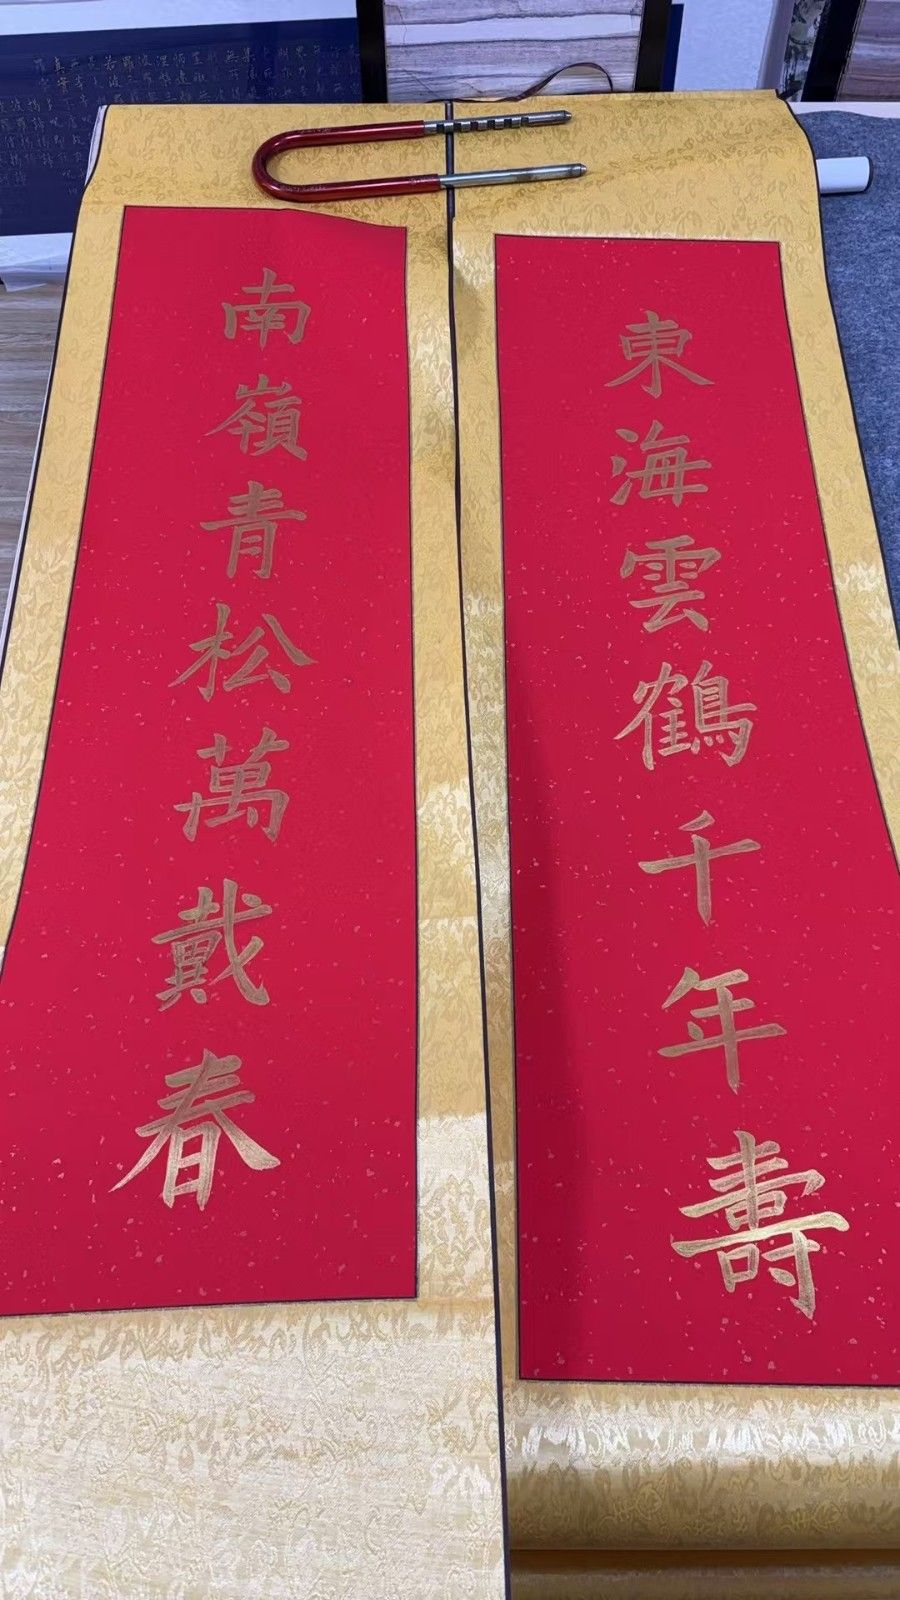 東海雲鶴千年壽
南嶺青松萬戴春